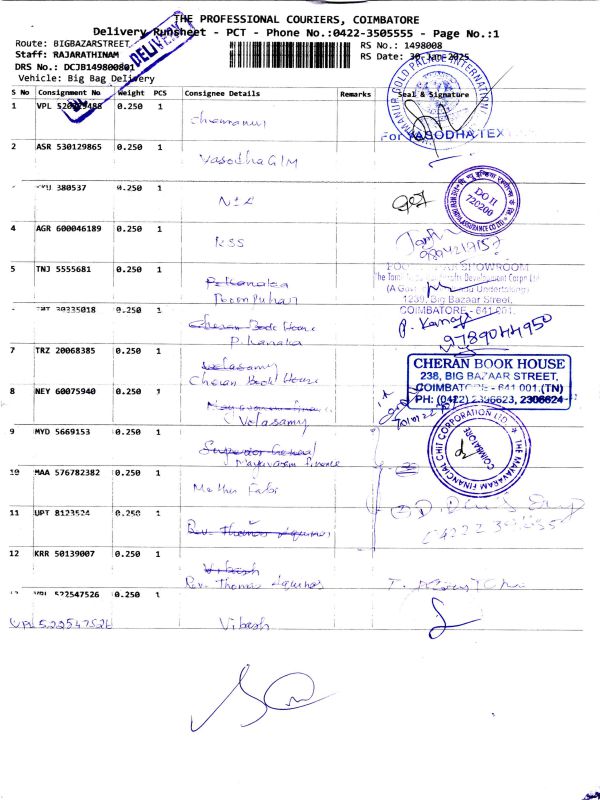 THE PROFESSIONAL COURIERS, COIMBATORE
Delivery Runsheet - PCT - Phone No.:0422-3505555 - Page No.:1
Route: BIGBAZARSTREET
Staff: RAJARATHINAM
DRS No.: DCJB149800801
Vehicle: Big Bag Delivery
DELIVERY
RS No.: 1498008
RS Date: 30 Jan 2025
S No Consignment No Weight PCS Consignee Details Remarks Seal & Signature
1 VPL 0.250 1
For VASODHA TEX
2 ASR 530129865 0.250 1 Vasodha GIM
380537 0.250 1 NIA
DO II
720200
4 AGR 600046189 0.250 1 KSS
5 TNJ 5555681 0.250 1 P. Kanaka
Poompuhar
SHOWROOM
1239, Big Bazaar Street,
COIMBATORE - 641 001.
30335018 0.250 1 Cheran Book House
P. Kanaka
P. Kanaga
9789044950
7 TRZ 20068385 0.250 1 Velasamy
Cheran Book House
CHERAN BOOK HOUSE
238, BIG BAZAAR STREET,
COIMBATORE - 641 001.(TN)
PH: (0422) 2306623, 2306624
8 NEY 60075940 0.250 1
Velasamy
9 MYD 5669153 0.250 1 Superior General
Mayavaram Finance
THE MAYAVARAM FINANCIAL CHIT CORPORATION LTD.
COIMBATORE
10 MAA 576782382 0.250 1
11 UPT 8123524 0.250 1 Rev. Thomas Aquinas
12 KRR 50139007 0.250 1 Vikash
Rev. Thomas Aquinas
VPL 522547526 0.250 1
VPL 522547526 Vikash